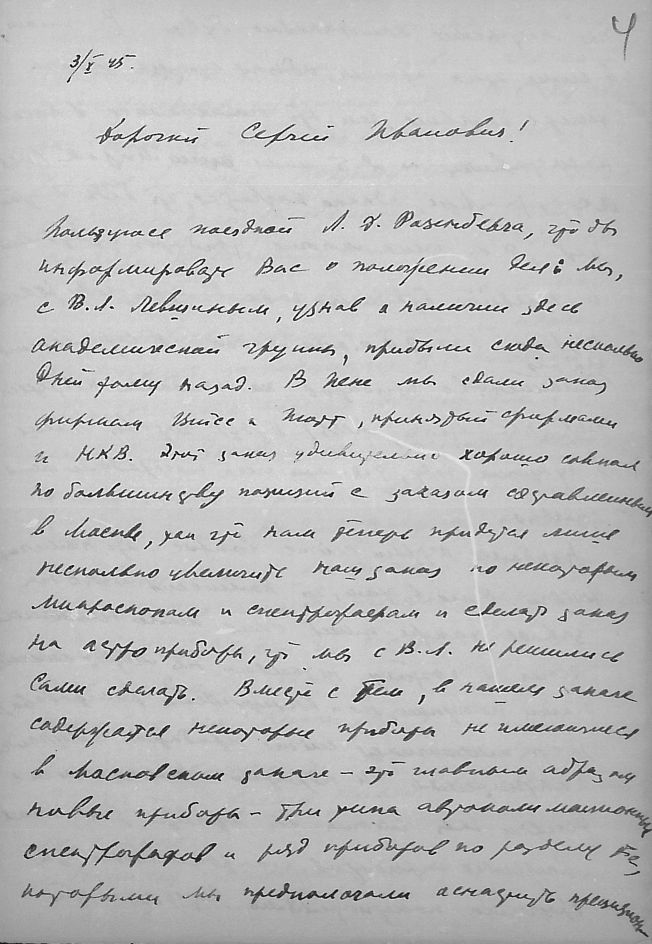 4
3/X 45.
Дорогой Сергей Иванович!
Пользуюсь поездкой Л. Д. Розенберга, чтобы
информировать Вас о положении дел. Мы,
с В.Л. Левшиным, узнав о наличии здесь
академической группы, прибыли сюда несколько
дней тому назад. В Иене мы сдали заказ
фирмам Цейсс и Шотт, принятый фирмами
и НКВ. Этот заказ удивительно хорошо совпал
по большинству позиций с заказом составленным
в Москве, так что нам теперь придется лишь
несколько увеличить наш заказ по некоторым
микроскопам и спектрографам и сделать заказ
на астроприборы, что мы с В.Л. не решились
сами сделать. Вместе с тем, в нашем заказе
содержатся некоторые приборы не имеющиеся
в московском заказе – это главным образом
новые приборы – три типа автоколлимационных
спектрографов и ряд приборов по разделу
которыми мы предполагали оснастить прецизион-